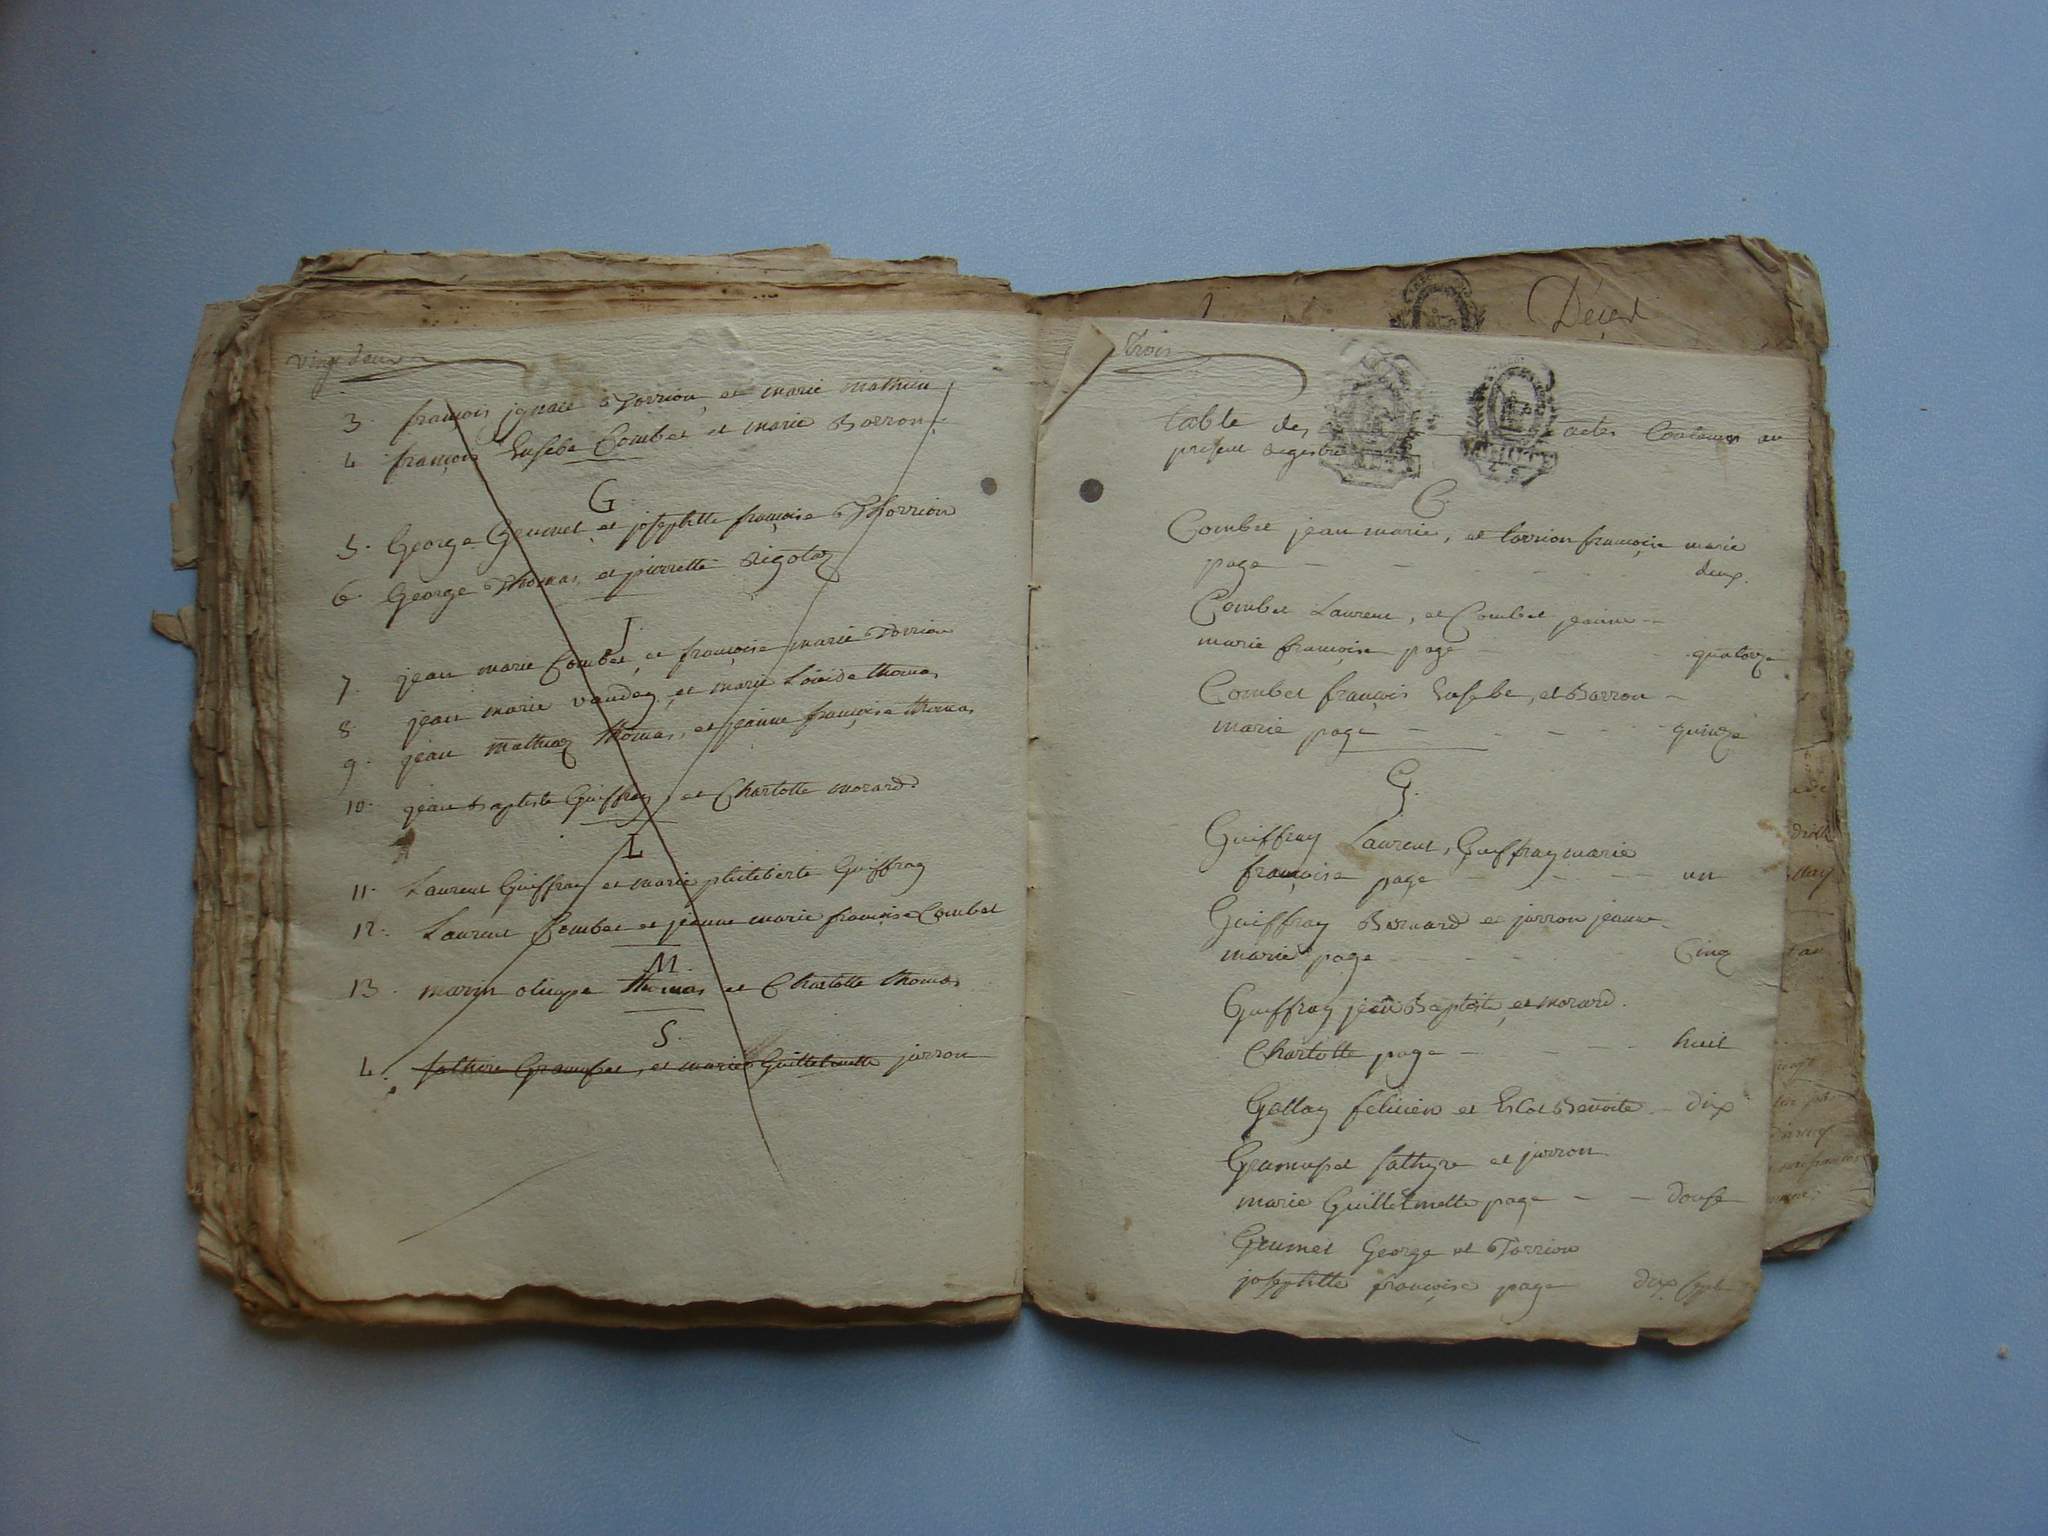 vingt deux
3. françois ignace Torrion, et marie mathieu
4 françois Eusebe Combet et marie Borron.
G.
5. George Grumet, et josephtte françoise Thorrion
6. George Thomas, et pierrette Rigolet
J.
7. jean marie Combet, et françoise marie Torrion
8 jean marie vauday, et marie Louise thomas
9. jean mathias thomas, et jeanne françoise thomas
10. jean Baptiste Guiffray, et Charlotte morard
L
11. Laurent Guiffray et marie philiberte Guiffray
12. Laurent Combet et jeanne marie françoise Combet
M.
13. marin olimpe thomas et Charlotte thomas
S.
et marie Guillelmette jurron
Décès
trois
table des actes Contenus au
présent Registre
C.
Combet jean marie, et torrion françoise marie
page - - - - - deux.
Combet Laurent, et Combet jeanne -
marie françoise page - - - quatorze
Combet françois Eusebe, et Borron -
marie page - - - - quinze
G.
Guiffray Laurent, Guiffray marie
françoise page - - - - un
Guiffray Bernard et jurron jeanne -
marie page - - - - Cinq
Guiffray jean Baptiste, et morard.
Charlotte page - - - - huit
felicien et Benoite - dix
Grumusset Sathyre et jurron
marie Guillelmette page - - douse
Grumet George et Torrion
josephtte françoise page dix sept